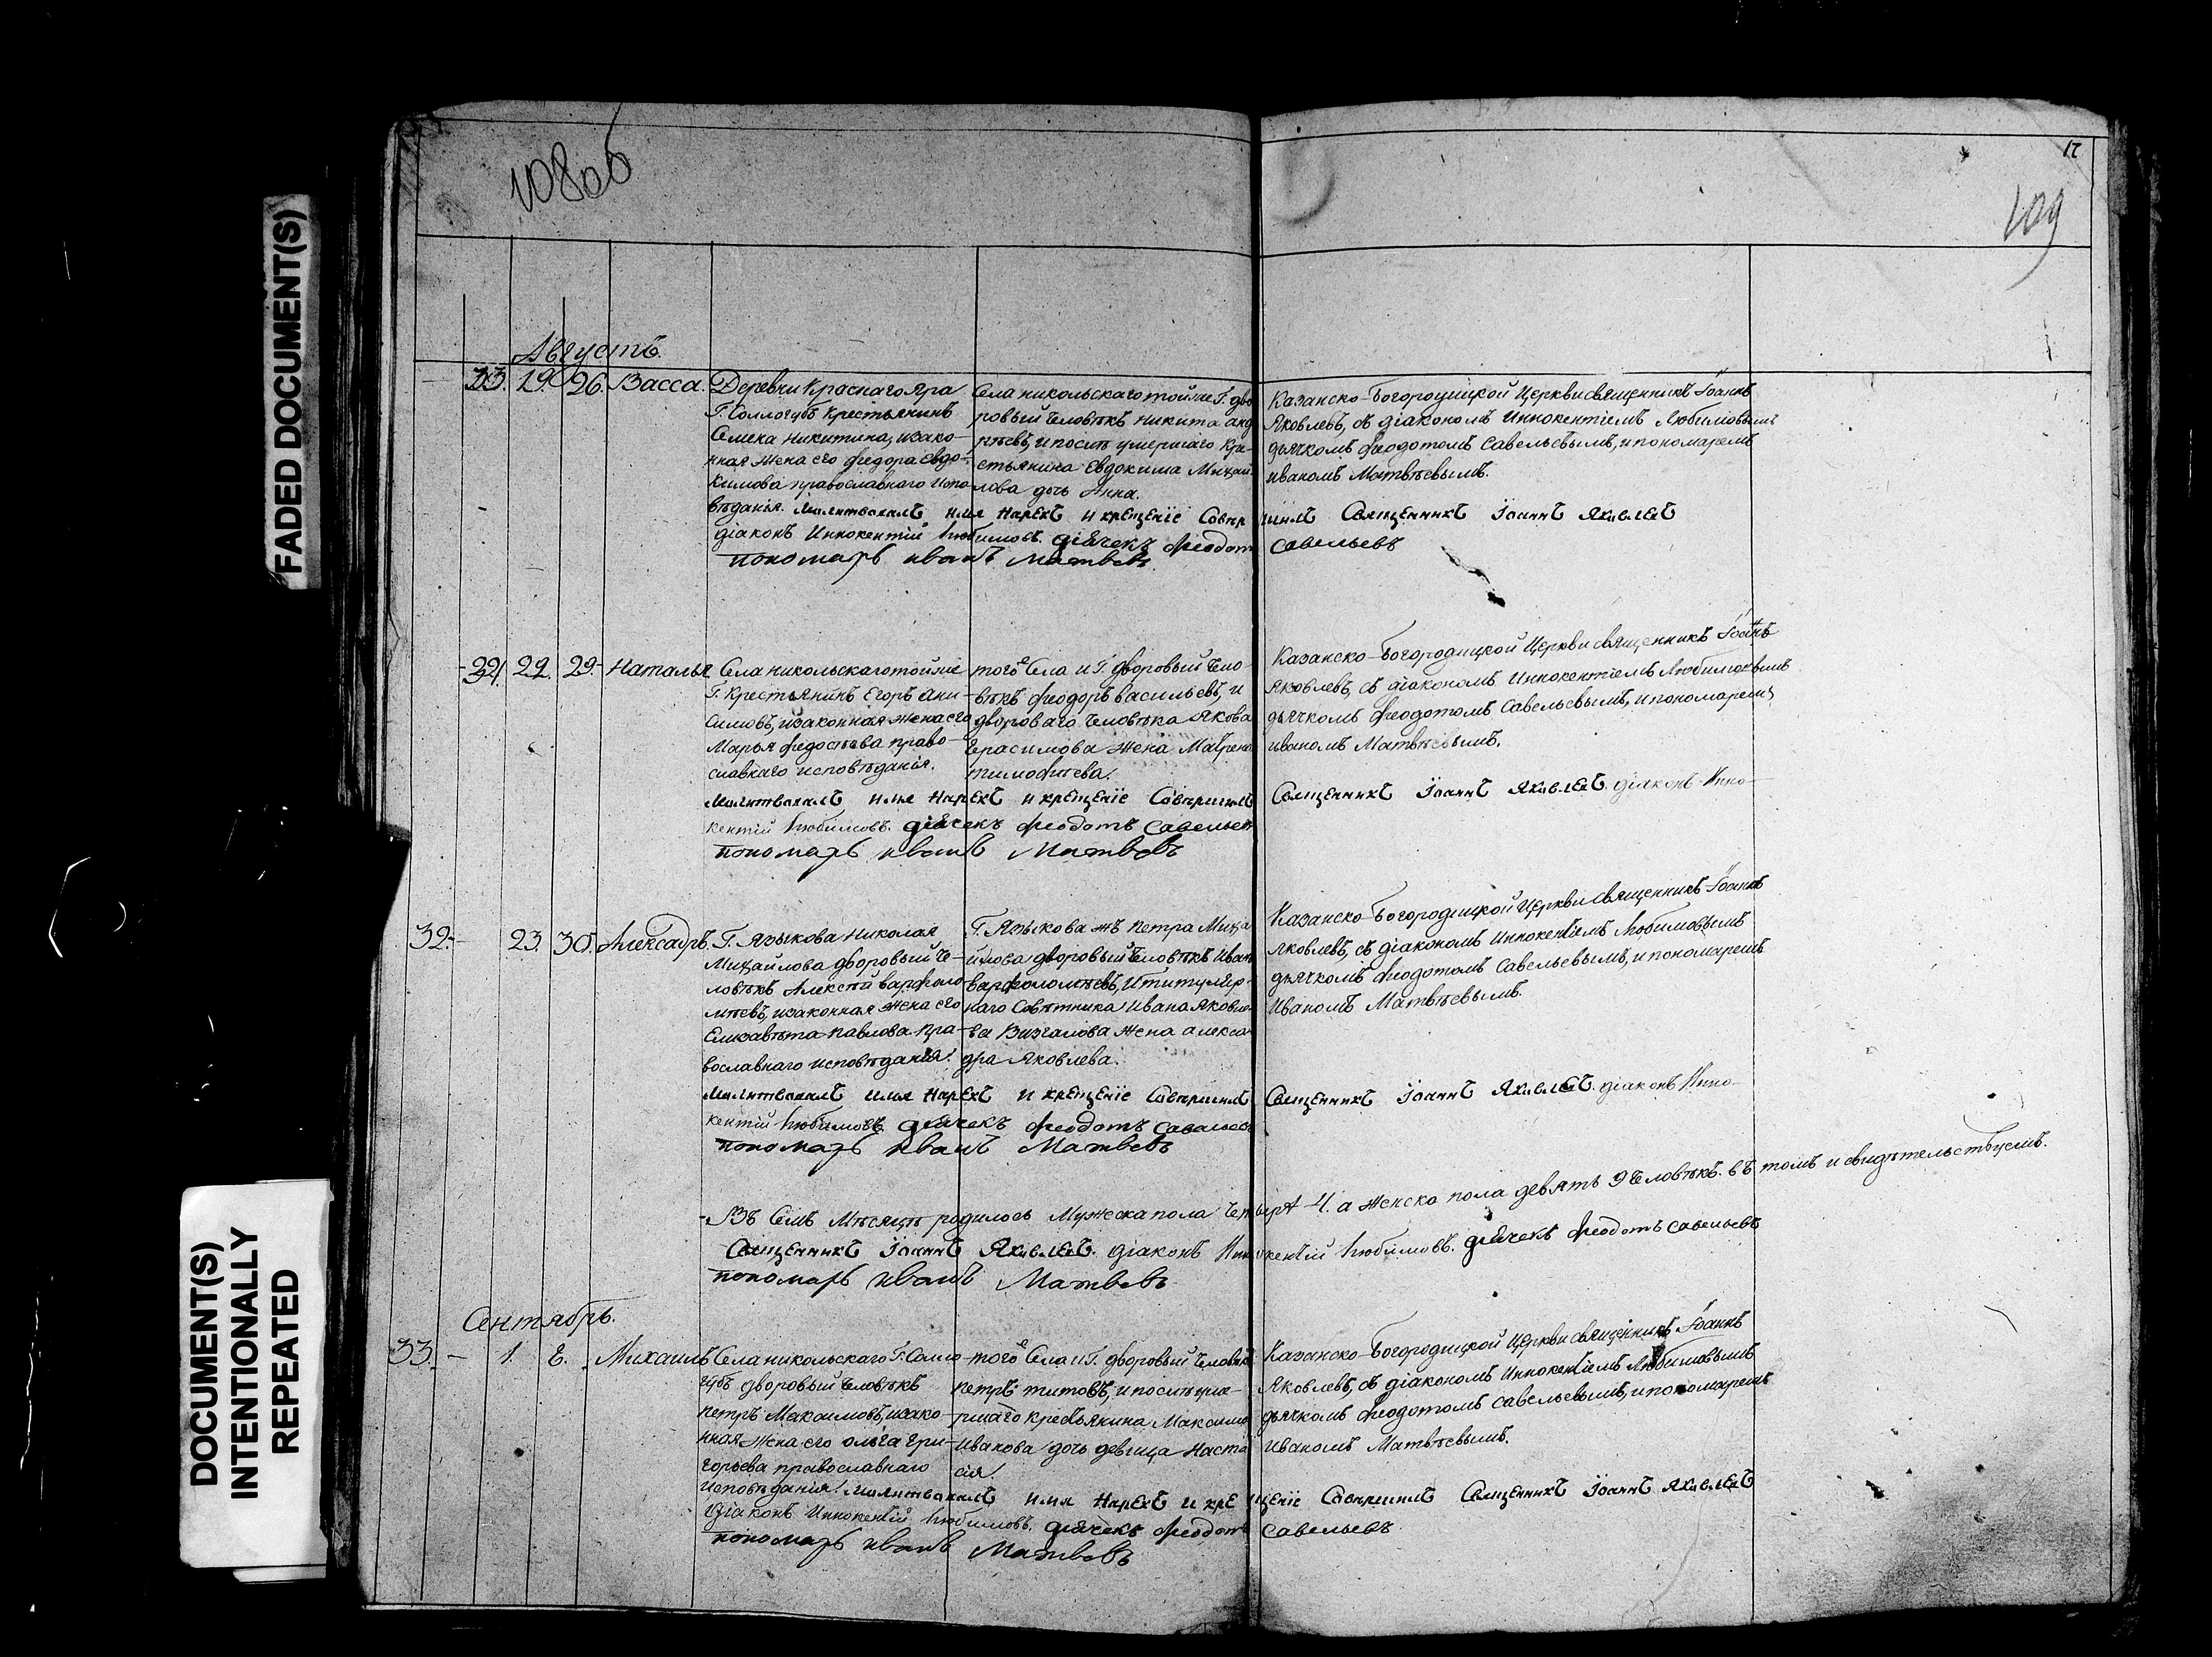 108об
17
109
FADED DOCUMENT(S)
DOCUMENT(S)
INTENTIONALLY
REPEATED
Августъ.
33. 19. 26. Васса.
Деревни Краснаго Яра
Г. Соллогубъ крестьянинъ
Семена Никитина, изако-
нная жена его Федора Евдо-
кимова православнаго испо-
вѣданія.
Села никольскаго тойже Г. дво
ровый человѣкъ Никита анд
рѣевъ, и посит умершаго кре-
стьянина Евдокима Михай-
лова дочь Анна.
Казанско-Богородицкой Церкви священникъ Іоаннъ
Яковлевъ, съ діакономъ Иннокентіемъ Любимовымъ
дьячкомъ Феодотомъ Савельевымъ, и пономаремъ
иваномъ Матвѣевымъ.
Молитвовалъ имя нарекъ и крещеніе совершилъ Священникъ Іоаннъ Яковлевъ
діаконъ Иннокентій Любимовъ. дьячекъ Феодотъ Савельевъ
пономарь иванъ Матвевъ
34. 22. 29. Наталья
Села никольскаго тойже
Г. Крестьянинъ Егоръ Ани-
симовъ, изаконная жена его
Марья Федосѣева право-
славнаго исповѣданія.
того Села и Г. дворовый чело-
вѣкъ Феодоръ Васильевъ, и
двороваго человѣка Якова
Герасимова жена Маврена
тимофѣева.
Казанско-Богородицкой Церкви священникъ Іоаннъ
Яковлевъ, съ діакономъ Иннокентіемъ Любимовымъ
дьячкомъ Феодотомъ Савельевымъ, и пономаремъ
иваномъ Матвѣевымъ.
Молитвовалъ имя нарекъ и крещеніе совершилъ Священникъ Іоаннъ Яковлевъ. діаконъ Инно-
кентій Любимовъ. дьячекъ Феодотъ Савельевъ
пономарь иванъ Матвевъ
32. - 23. 30. Алексадръ.
Г. Языкова Николая
Михайлова дворовый че-
ловѣкъ Алексѣй варфоло-
мѣевъ, изаконная жена его
Елизавѣта Павлова пра-
вославнаго исповѣданія.
Г. Языкова жъ Петра Миха
йлова дворовый человѣкъ Иван
варфоломѣевъ, и титуляр-
наго Совѣтника Ивана Яковле-
ва Визгалова жена алекса-
дра Яковлева.
Казанско-Богородицкой Церкви Священникъ Іоаннъ
яковлевъ, съ діакономъ Иннокентіемъ Любимовымъ
дьячкомъ Феодотомъ Савельевымъ, и пономаремъ
Иваномъ Матвѣевымъ.
Молитвовалъ имя нарекъ и крещеніе совершилъ Священникъ Іоаннъ Яковлевъ. діаконъ Инно-
кентій Любимовъ. дьячекъ Феодотъ Савельевъ
пономарь иванъ Матвевъ
Въ Семъ Мѣсяцѣ родилось Мужеска пола 4. а Женска пола девять 9 человѣкъ. въ томъ и свидѣтельствуемъ.
Священникъ Іоаннъ Яковлевъ. діаконъ Иннокентій Любимовъ. дьячекъ Феодотъ Савельевъ
пономарь иванъ Матвевъ
Сентябрь.
33. - 1. 8. Михаилъ
Села никольскаго Г. Солло-
губъ дворовый человѣкъ
петръ Максимовъ, изако-
нная жена его ольга гри-
горьева православнаго
исповѣданія.
того Села и Г. дворовый человѣкъ
петръ титовъ, и посит уме-
ршаго крестьянина Максима
Иванова дочь девица Наста
сія.
Казанско-Богородицкой Церкви священникъ Іоаннъ
Яковлевъ, съ діакономъ Иннокентіемъ Любимовымъ
дьячкомъ Феодотомъ Савельевымъ, и пономаремъ
Иваномъ Матвѣевымъ.
Молитвовалъ имя нарекъ и крещеніе совершилъ Священникъ Іоаннъ Яковлевъ
Діаконъ Иннокентій Любимовъ. дьячекъ Феодотъ Савельевъ
пономарь иванъ Матвевъ